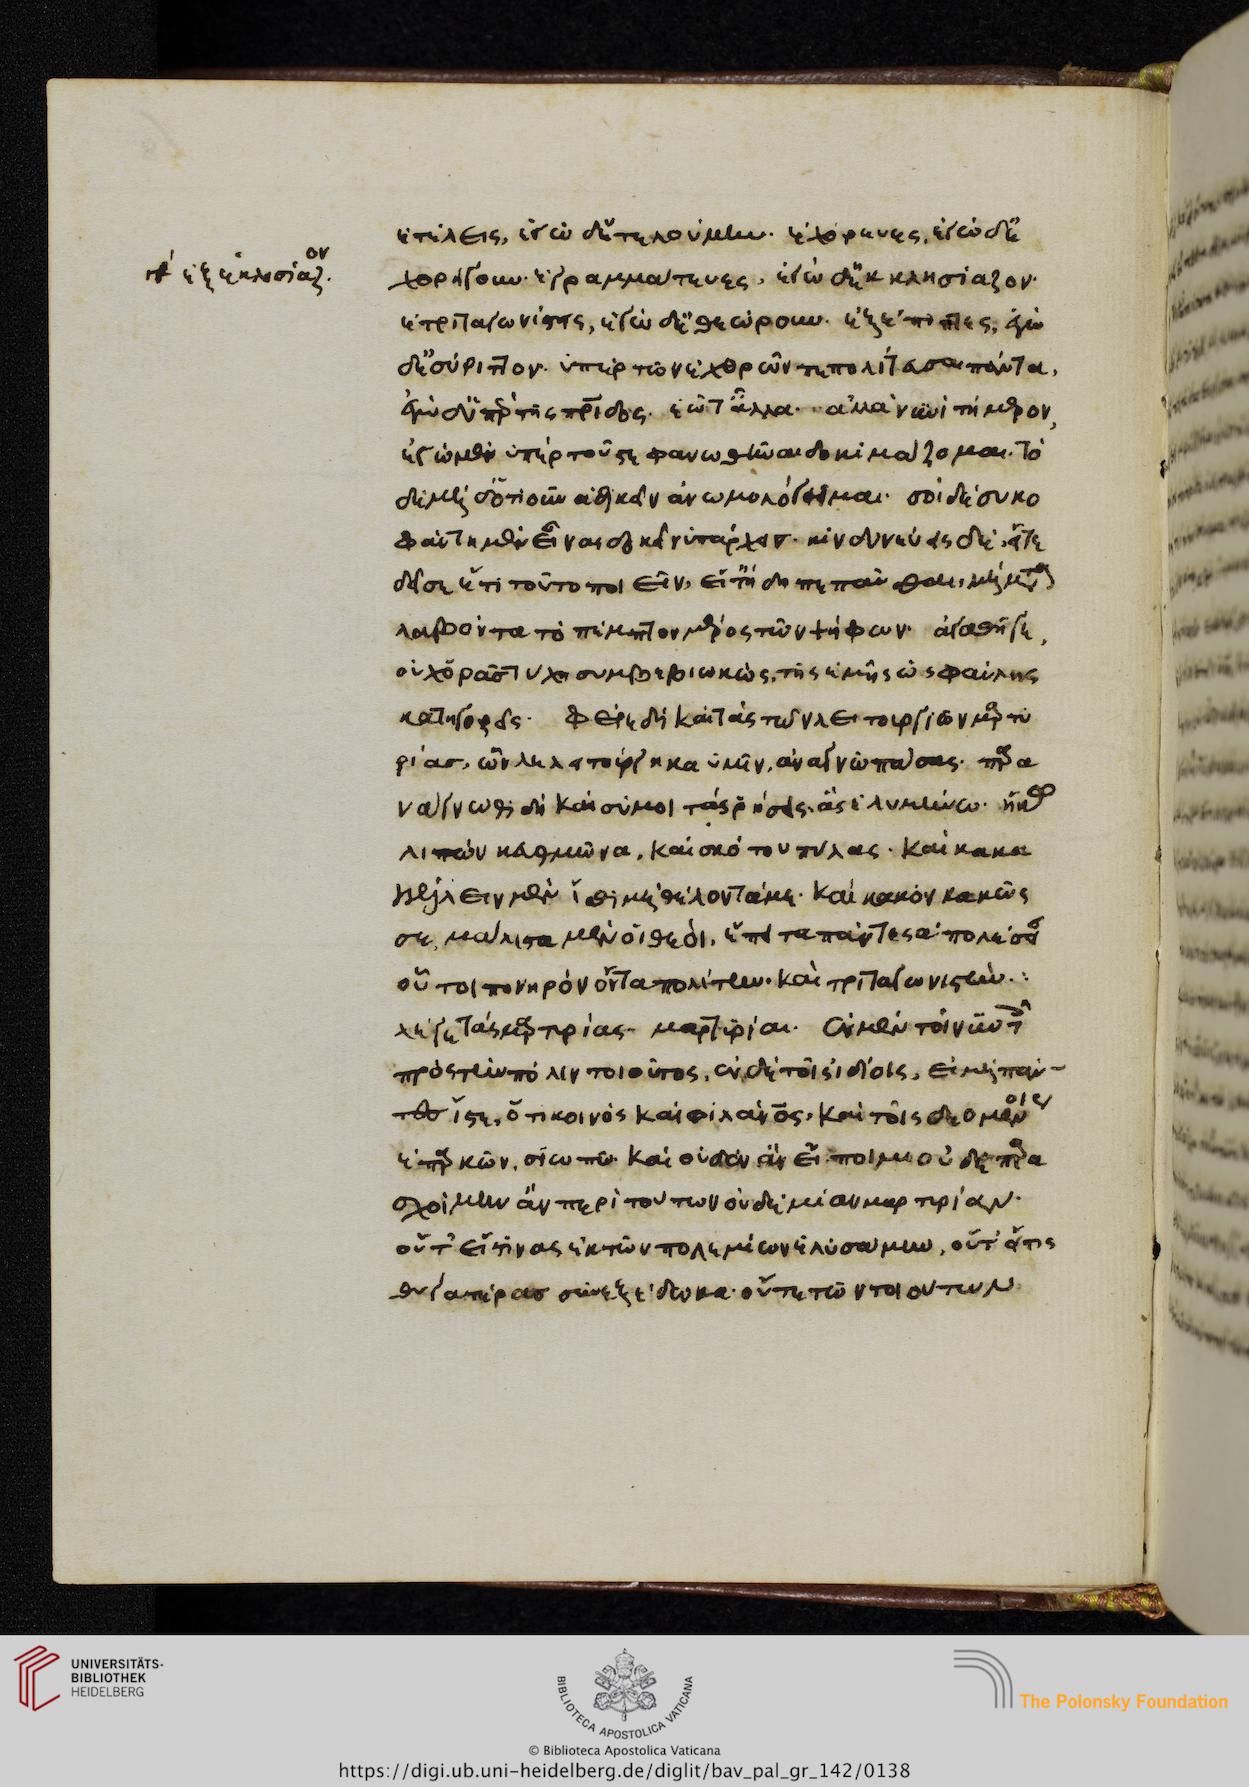 ἐτέλεις, ἐγὼ δ' ἐτελούμην. ἐχόρευες, ἐγὼ δ' ἐ
χορήγουν. ἐγραμμάτευες, ἐγὼ δ' ἐκκλησίαζον.
ἐξεκλησίαζον.
ἐτριταγωνίστεις, ἐγὼ δ' ἐθεώρουν. ἐξέπιπτες, ἐγὼ
δ' ἐσύριττον. ὑπὲρ τῶν ἐχθρῶν πεπολίτευσαι πάντα,
ἐγὼ δ' ὑπὲρ τῆς πατρίδος. ἐῶ τἄλλα. ἀλλὰ νυνὶ τήμερον,
ἐγὼ μὲν ὑπὲρ τοῦ στεφανωθῆναι δοκιμάζομαι. τὸ
δὲ μηδ' ὁτιοῦν ἀδικεῖν ἀνωμολόγημαι. σοὶ δὲ συκο
φάντῃ μὲν εἶναι δοκεῖν ὑπάρχει. κινδυνεύεις δὲ, εἴτε
δεῖ σε ἔτι τοῦτο ποιεῖν, εἴτ' ἤδη πεπαῦσθαι, μὴ μετα
λαβόντα τὸ πέμπτον μέρος τῶν ψήφων. ἀγαθῇ γε,
οὐχ ὁρᾷς τύχῃ συμβεβιωκὼς, τῆς ἐμῆς ὡς φαύλης
κατηγορεῖς. Φέρε δὴ καὶ τὰς τῶν λειτουργιῶν μαρτυ
ρίας, ὧν λελειτούργηκα ὑμῖν, ἀναγνῶ πάσας. παρα
νάγνωθι δὴ καὶ σύ μοι τὰς ῥήσεις, ἃς ἐλυμαίνου. ἥκω
λιπὼν κευθμῶνα, καὶ σκότου πύλας. καὶ κακα
γγέλειν μὲν ἴσθι μὴ θέλοντά με. καὶ κακὸν κακῶς
σε, μάλιστα μὲν οἱ θεοὶ, ἔπειτα πάντες ἀπολέσειαν
οὗτοι πονηρὸν ὄντα πολίτην. καὶ τριταγωνιστήν.
λέγε τὰς μαρτυρίας. μαρτυρίαι. Ἐν μὲν τοίνυν τοῖς
πρὸς τὴν πόλιν τοιοῦτος, ἐν δὲ τοῖς ἰδίοις, εἰ μὴ πάν
τες ἴστε, ὅτι κοινὸς καὶ φιλάνος, καὶ τοῖς δεομένοις
ἐπαρκῶν, σιωπῶ. καὶ οὐδὲν ἂν εἴποιμι οὐδὲ παρα
σχοίμην ἂν περὶ τούτων οὐδεμίαν μαρτυρίαν.
οὔτ' εἴ τινας ἐκ τῶν πολεμίων ἐλυσάμην, οὔτ' εἴ τισι
θυγατέρας συνεξέδωκα. οὔτε τῶν τοιούτων
UNIVERSITÄTS-
BIBLIOTHEK
HEIDELBERG
BIBLIOTECA APOSTOLICA VATICANA
The Polonsky Foundation
© Biblioteca Apostolica Vaticana
https://digi.ub.uni-heidelberg.de/diglit/bav_pal_gr_142/0138